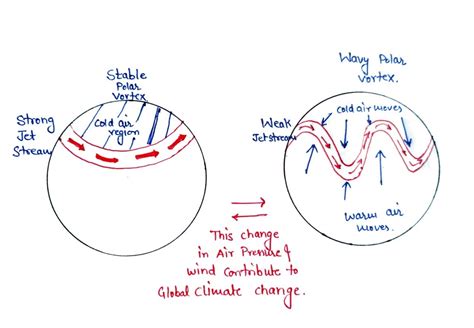 Stable
Polar
Vortex
Strong
Jet
Stream
Cold air
region
Wavy Polar
Vortex.
Weak
Jet stream
Cold air moves
Warm air
moves.
This change
in Air Pressure &
wind contribute to
Global Climate change.